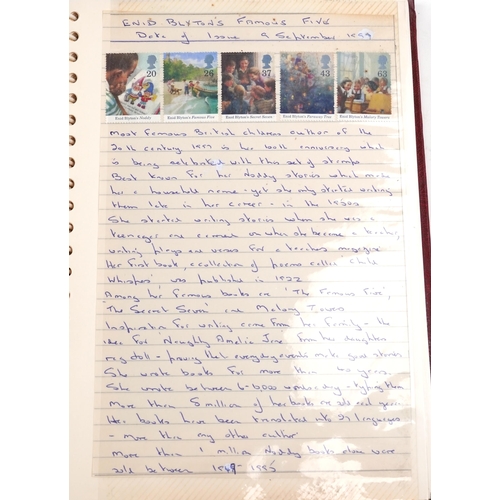 ENID BLYTON'S FAMOUS FIVE
Date of Issue 9 September
20 26 37 43 63
Enid Blyton's Noddy Enid Blyton's Famous Five Enid Blyton's Secret Seven Enid Blyton's Faraway Tree Enid Blyton's Malory Towers
Most Famous British childrens author of the
20th century 1897 is her birth anniversary which
is being celebrated with this set of stamps
Best known for her Noddy stories which make
her a household name - yet she only started writing
them late in her career - in the
She started writing stories when she was a
teenager and on when she became a teacher,
writing plays and verses for a teachers magazine
Her first book, a collection of poems called Child
Whispers, was published in 1922
Among her famous books are 'The Famous Five',
'The Secret Seven and Malory Towers
Inspiration for writing came from her family - the
idea for Naughty Amelia Jane from her daughters
rag doll - proving that everyday events make good stories
She wrote books for more than 40 years.
She wrote between 6-8000 words a day - typing them
More than 5 million of her books are sold each year.
Her books have been translated into languages
- more than any other author
More than 1 million Noddy books alone were
sold between